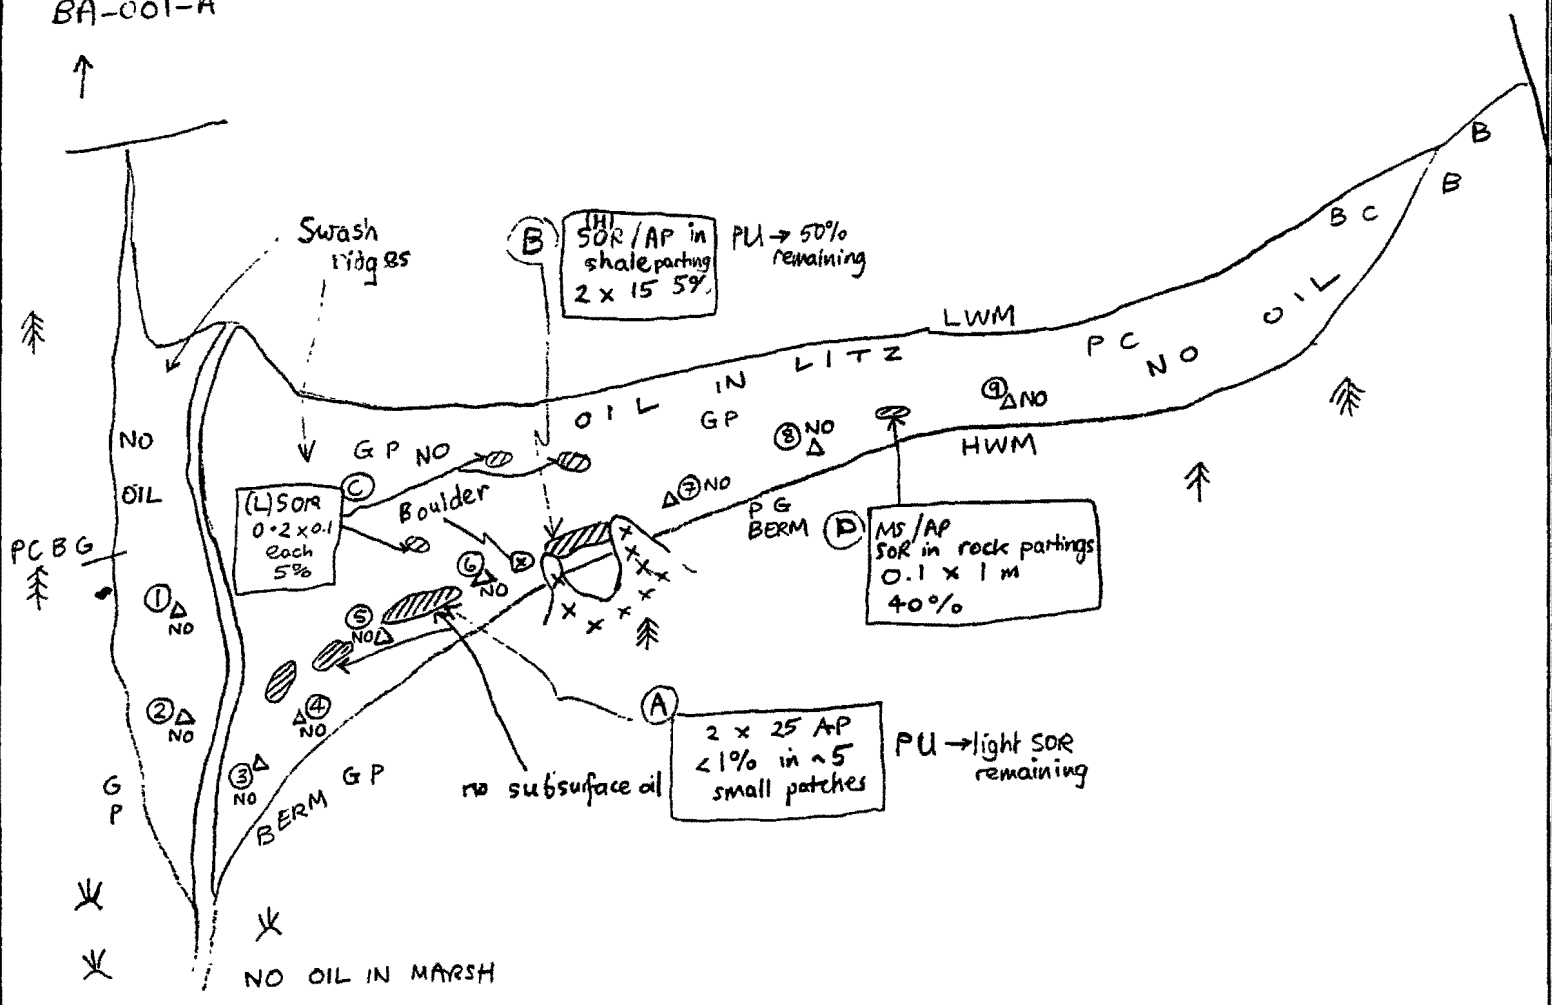 BA-001-A
Swash
ridges
B
(H)
SOR/AP in
shale parting
2 x 15 5%
PU → 50%
remaining
LWM
B
B
B C
OIL
P C
NO
OIL IN LITZ
GP
⑨ NO
⑧ NO
HWM
NO
OIL
GP NO
C
(L) SOR
0.2 x 0.1
each
5%
Boulder
⑦ NO
PG
BERM
D
MS/AP
SOR in rock partings
0.1 x 1 m
40%
PCBG
⑥
NO
① NO
⑤
NO
② NO
④
NO
③
NO
A
2 x 25 AP
<1% in ~5
small patches
PU → light SOR
remaining
no subsurface oil
G
P
BERM GP
NO OIL IN MARSH